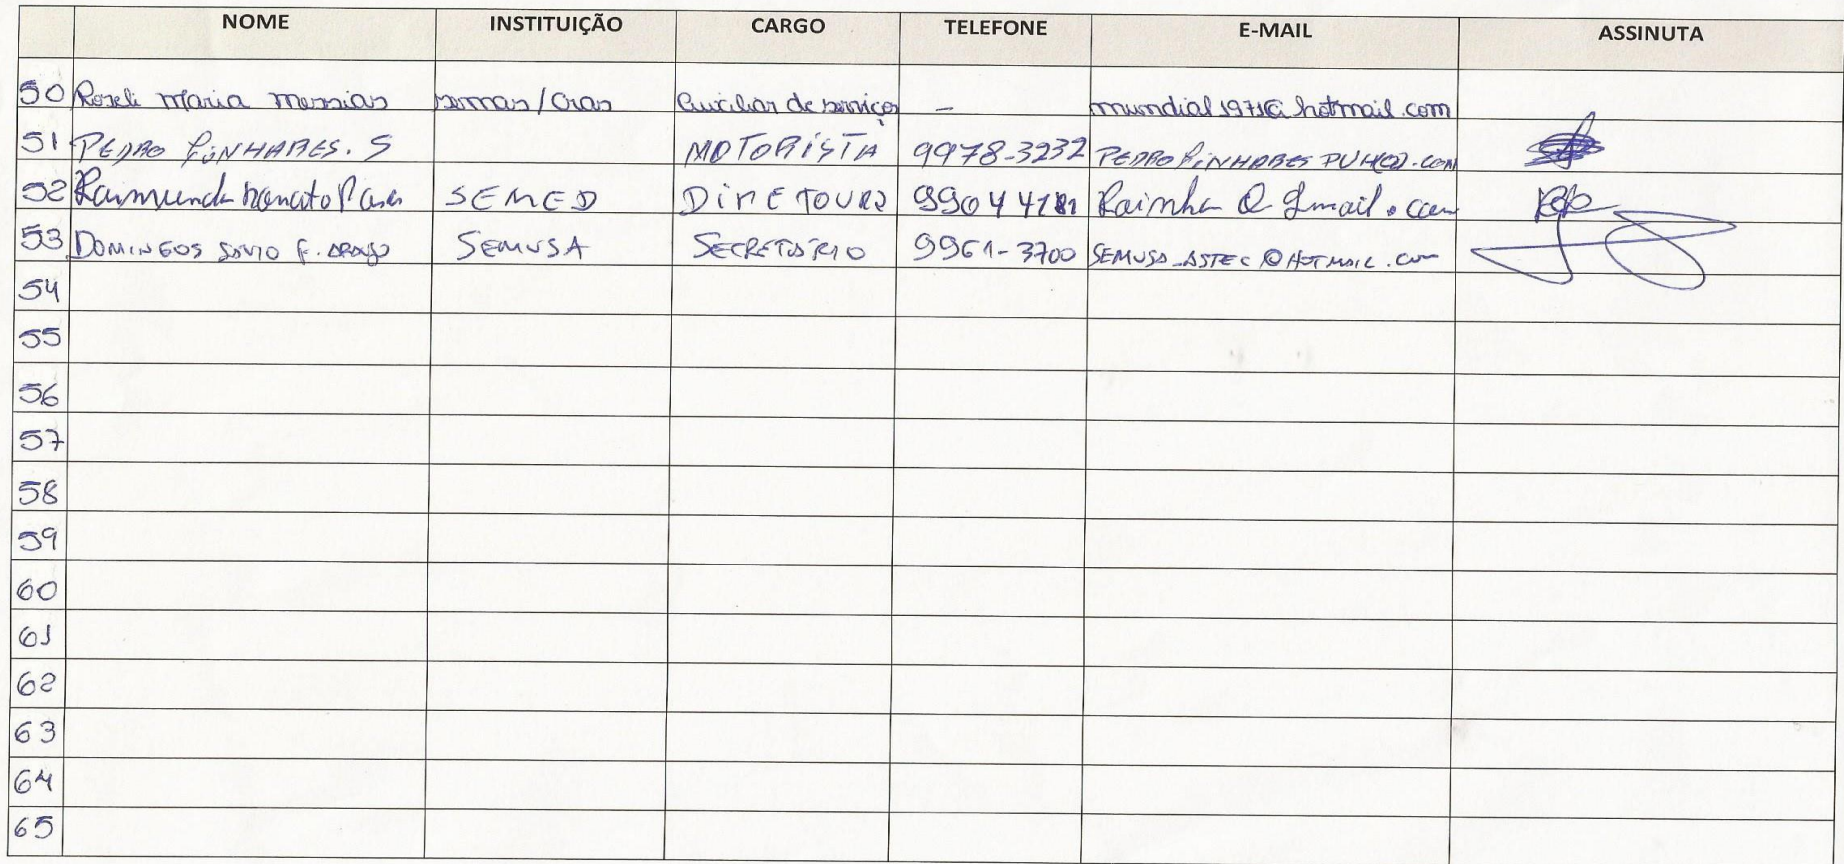 NOME INSTITUIÇÃO CARGO TELEFONE E-MAIL ASSINUTA
50 Roseli Maria Messias semas/Cras Auxiliar de serviços - mundial1971@hotmail.com
51 PEDRO LINHARES. S MOTORISTA 9978-3232 PEDRO LINHARES
52 Raimunda SEMED DIRETOURA Rainha @ gmail.com
53 DOMINGOS SAVIO F. ARAUJO SEMUSA SECRETÁRIO 9961-3700 SEMUSA_ASTEC@HOTMAIL.COM
54
55
56
57
58
59
60
61
62
63
64
65